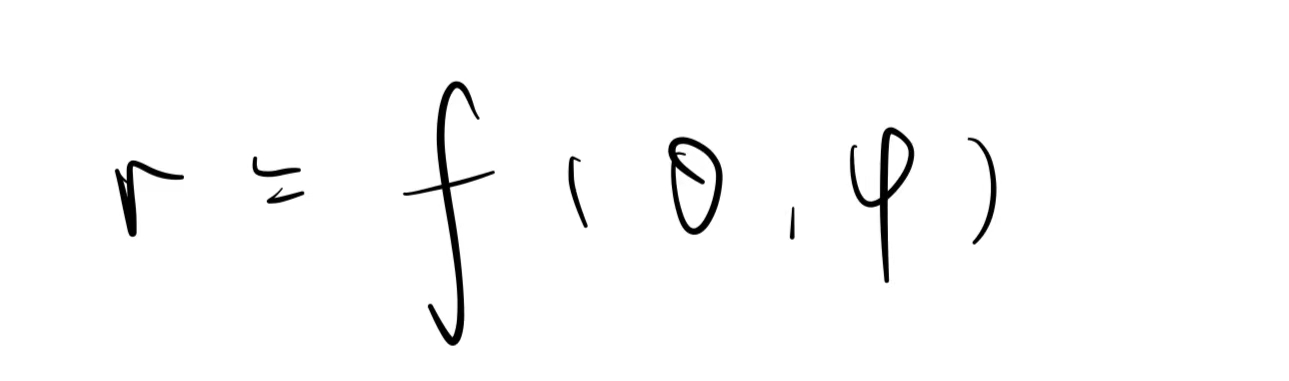 r = f(θ,φ)